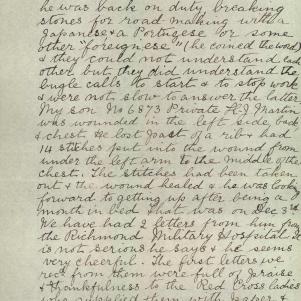 he was back on duty, breaking
stones for road making with a
Japanese & a Portugese or some
other "foreignese" (he coined the word)
& they could not understand each
other but they did understand the
bugle calls to start & to stop work
& were not slow to answer the latter.
My son No 6873 Private H J
was wounded in the left side, back
& chest. He lost part of a rib & had
14 stiches put into the wound from
under the left arm to the middle of the
chest. The stitches had been taken
out & the wound healed & he was looking
forward to getting up after being a
month in bed that was on Dec 3rd
We have had 2 letters from him from
the Richmond Military Hospital. It
is not serious he says & he seems
very cheerful. The first letters we
recd from them were full of praise
& thankfulness to the Red Cross ladies
who supplied them with paper &